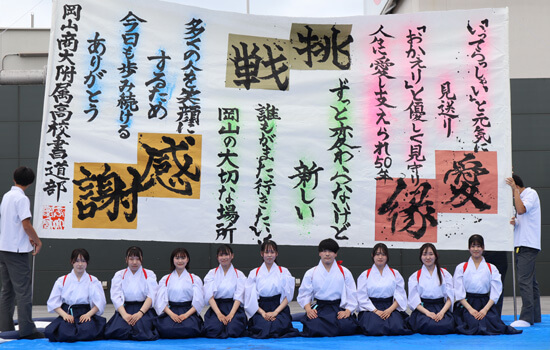 「いってらっしゃい」と元気に
見送り
「おかえり」と優しく見守り
人に愛し支えられ50年
愛
縁
挑
戦
ずっと変わらないけど
新しい
誰もがまた行きたい
岡山の大切な場所
多くの人を笑顔に
するため
今日も歩み続ける
ありがとう
感
謝
岡山商大附属高校書道部